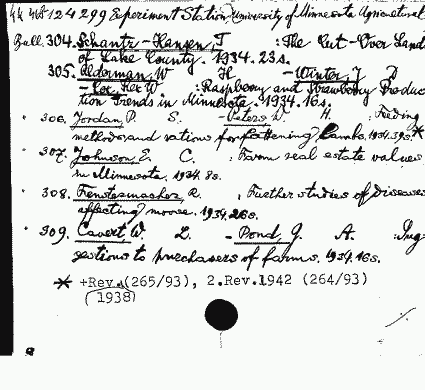 44 48 124 299 Experiment Station, University of Minnesota Agricultural
Bull. 304. Schantz-Hansen, T : The Cut-Over Land
of Lake County. 1934. 23 s.
305. Alderman, W H - Winter, J D
: Raspberry and Strawberry Produc
tion Trends in Minnesota. 1934. 16 s.
306. Jordan, P. S. - Peters, W. H. : Feeding
methods and rations for fattening lambs. 1934. 39 s. *
307. Johnson, E. C. : Farm real estate values
in Minnesota. 1934. 8 s.
308. Fenstermacher, R. : Further studies of diseases
affecting moose. 1934. 26 s.
309. Cavert, W. L. - Pond, G. A. Sug-
gestions to purchasers of farms. 1934. 16 s.
* +Rev. (265/93), 2.Rev.1942 (264/93)
(1938)